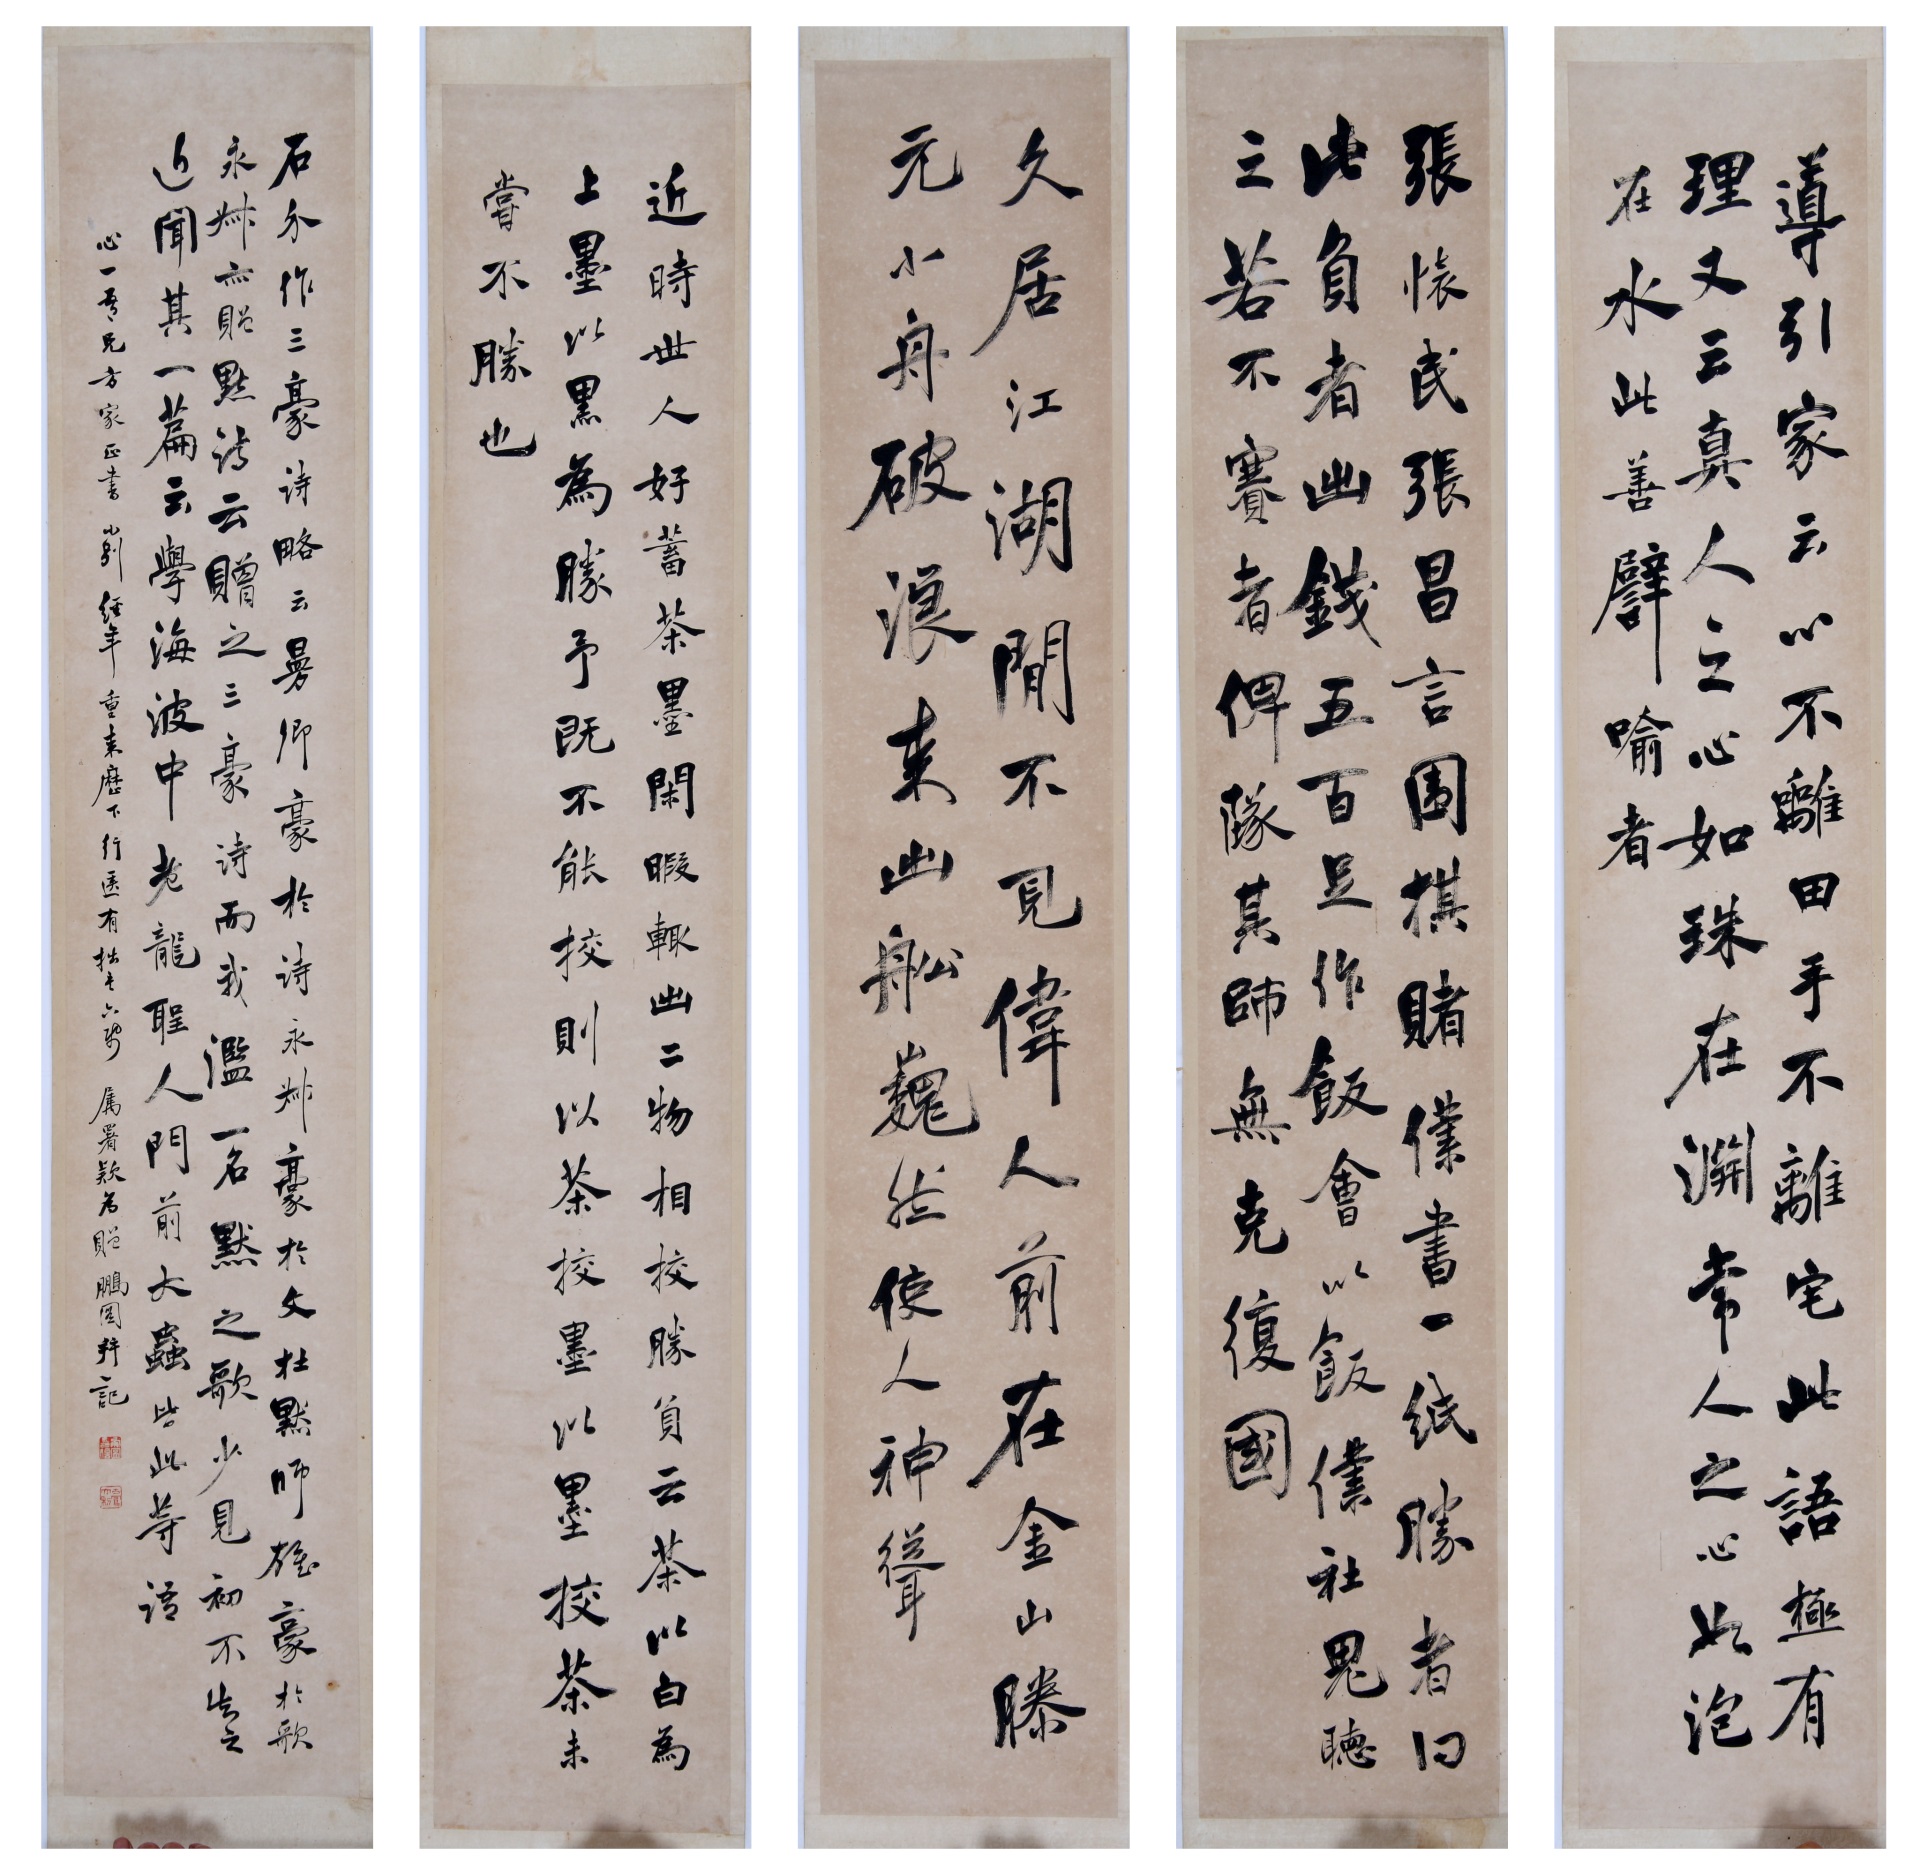 導引家云心不離田手不離宅此語極有
理又云真人之心如珠在淵常人之心如泡
在水此善譬喻者
張懷民張昌言圍棋賭僕書一紙勝者得
此負者出錢五百足作飯會以飯僕社鬼聽
之若不賽者俾墜其師無克復國
久居江湖間不見偉人前在金山滕
元小舟破浪來出船巍然使人神聳
近時世人好蓄茶墨閑暇輒出二物相校勝負云茶以白為
上墨以黑為勝予既不能校則以茶校墨以墨校茶未
嘗不勝也
石介作三豪詩略云曼卿豪於詩永叔豪於文杜默師雄豪於歌
永叔亦贈默詩云贈之三豪詩而我濫一名默之歌少見初不知之
近聞其一篇云學海波中老龍聖人門前大蟲皆此等語
心一吾兄方家正書 小別經年 重來歷下行匧有拙書六幅 屬署款為贈 鵬圖并記